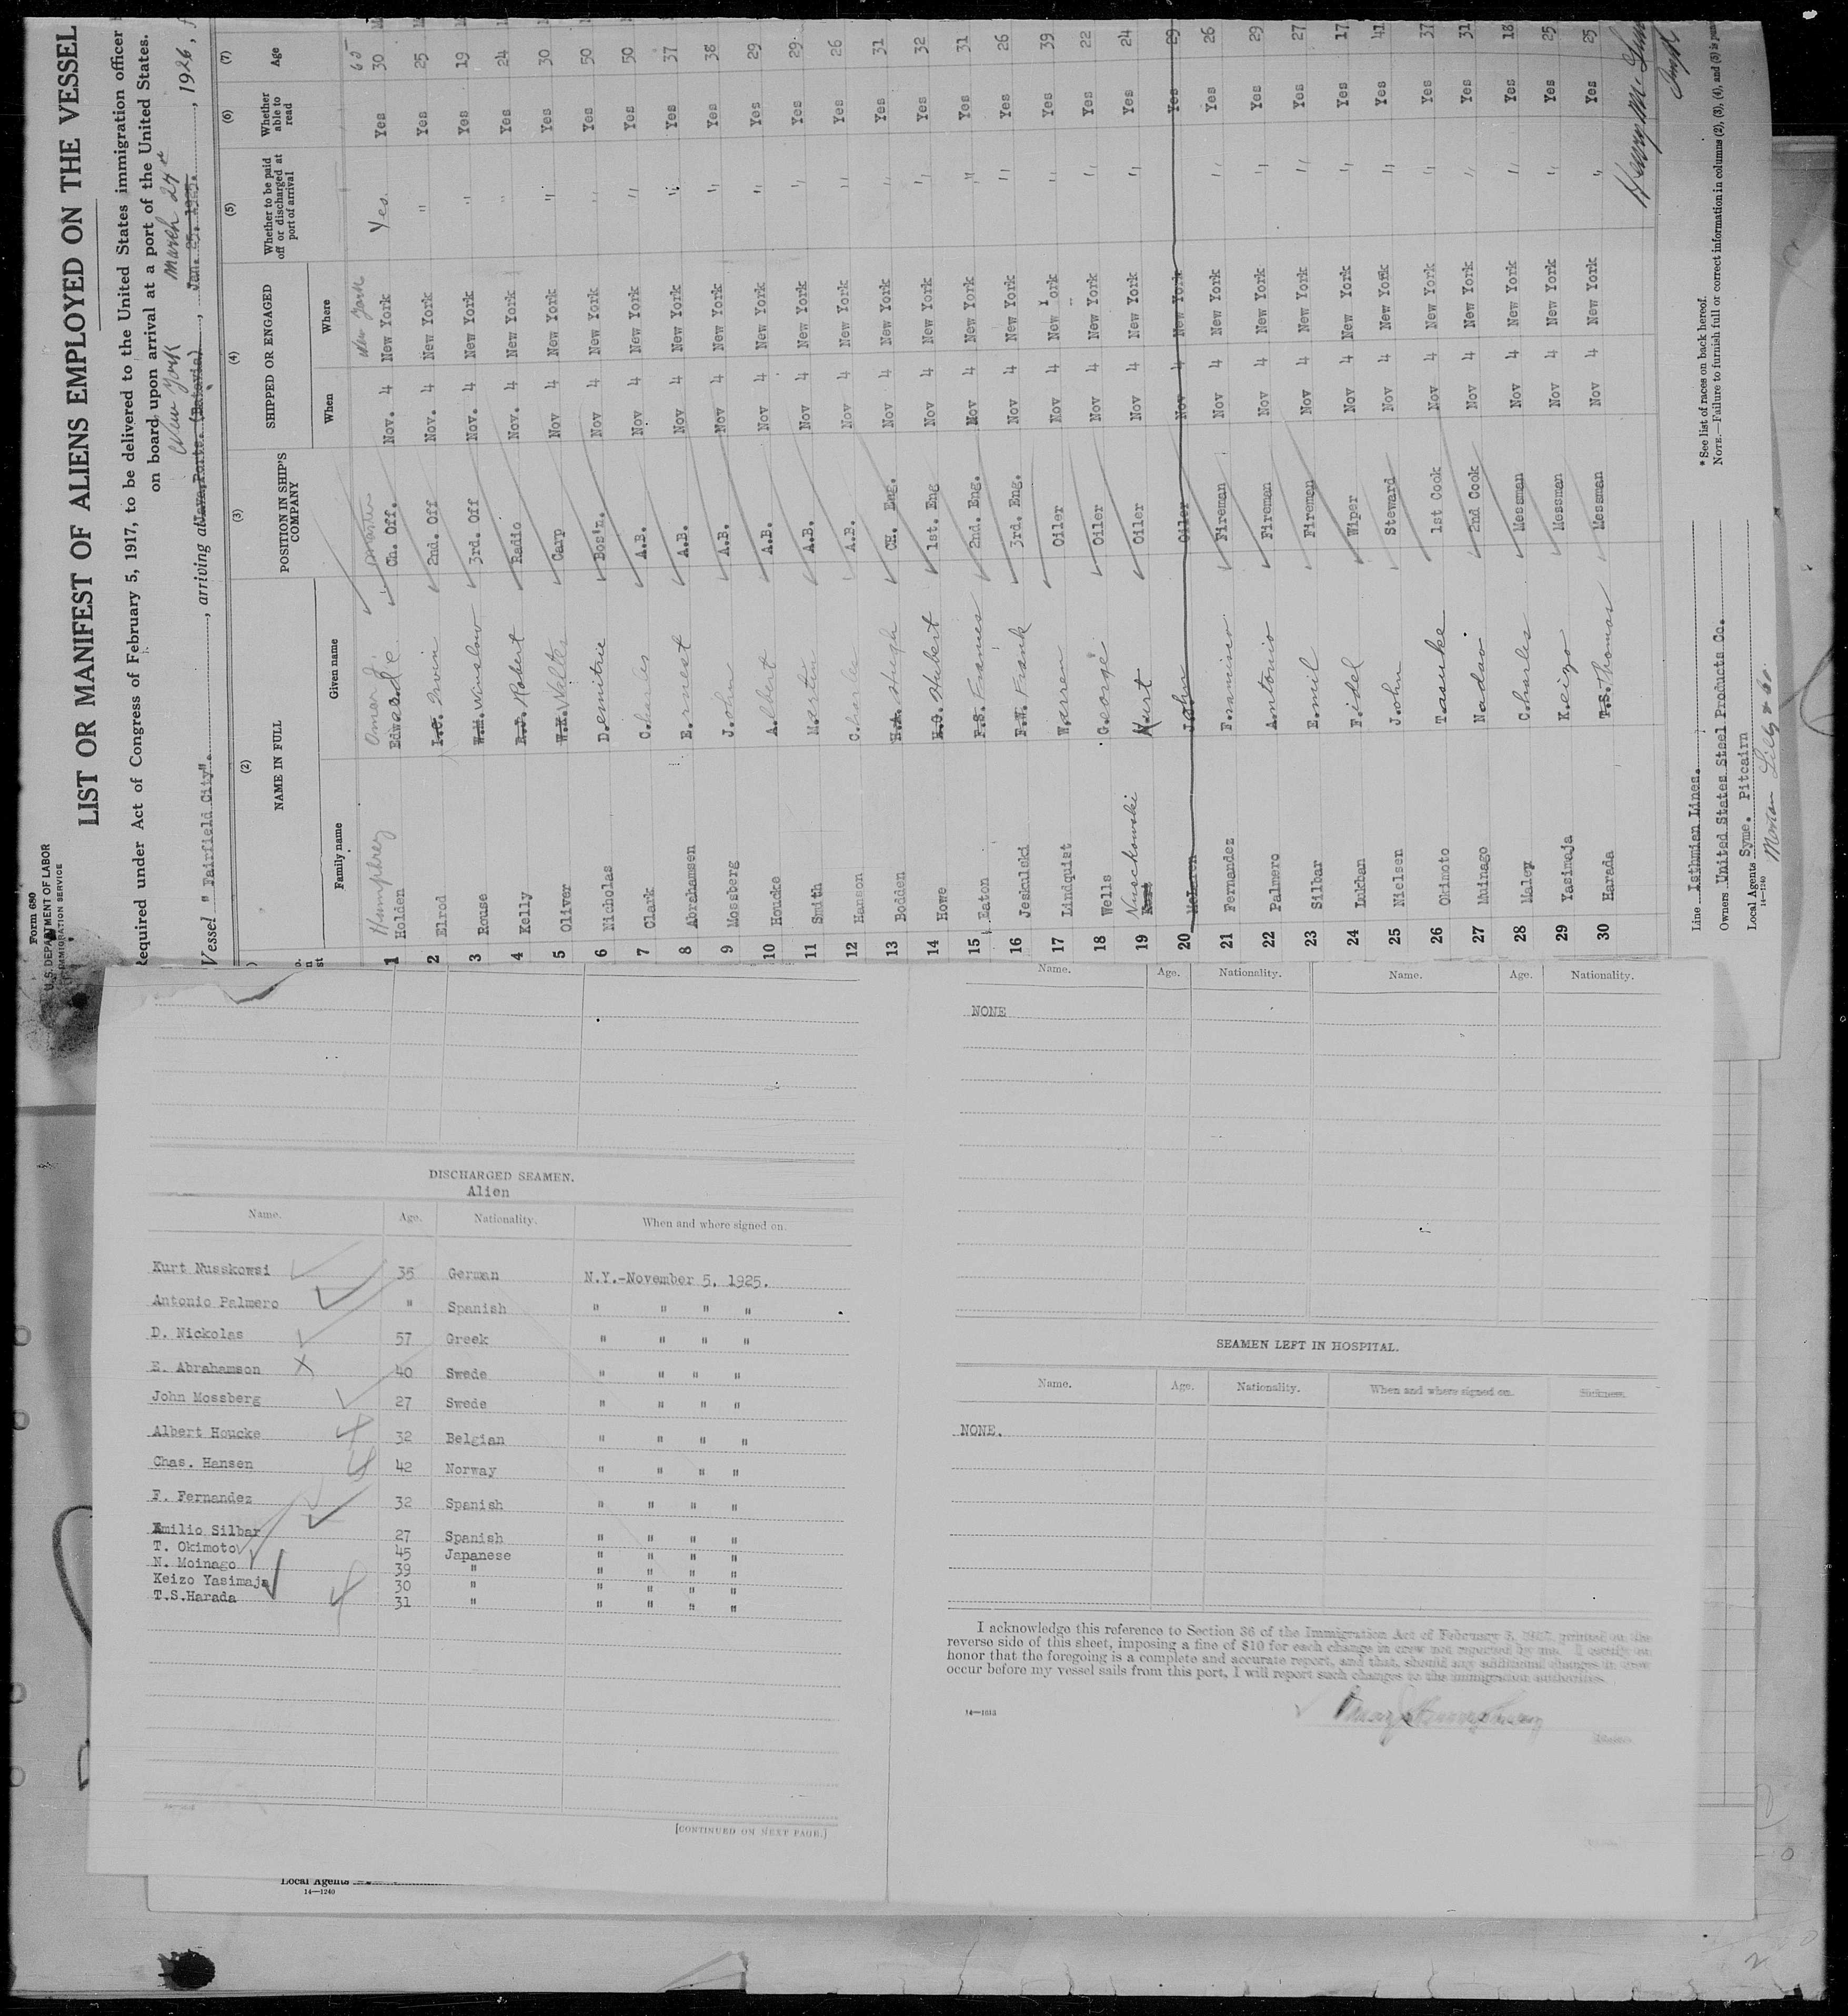 Form 680
U.S. DEPARTMENT OF LABOR
IMMIGRATION SERVICE
LIST OR MANIFEST OF ALIENS EMPLOYED ON THE VESSEL
Required under Act of Congress of February 5, 1917, to be delivered to the United States immigration officer
on board upon arrival at a port of the United States.
Vessel " Fairfield City". , arriving at Java Ports. (Batavia) New York , Jan. 25. 1925. March 24 , 1926,
(2) (3) (4) (5) (6) (7)
NAME IN FULL POSITION IN SHIP'S COMPANY SHIPPED OR ENGAGED Whether to be paid off or discharged at port of arrival Whether able to read Age
Family name Given name When Where
Humphrey Omar J. Master New York
1 Holden Edward Ch. Off. Nov. 4 New York Yes. Yes 30
2 Elrod Irvin 2nd. Off Nov. 4 New York " Yes 25
3 Rouse W.H. Winslow 3rd. Off Nov. 4 New York " Yes 19
4 Kelly R.J. Robert Radio Nov. 4 New York " Yes 24
5 Oliver W.K. Walter Carp Nov 4 New York " Yes 30
6 Nicholas Demitrie Bos'n. Nov 4 New York " Yes 50
7 Clark Charles A.B. Nov 4 New York " Yes 50
8 Abrahamsen Ernest A.B. Nov 4 New York " Yes 37
9 Mossberg John A.B. Nov 4 New York " Yes 38
10 Houcke Albert A.B. Nov 4 New York " Yes 29
11 Smith Martin A.B. Nov 4 New York " Yes 29
12 Hanson Charles A.B. Nov 4 New York " Yes 26
13 Bodden H.A. Hugh CH. Eng. Nov 4 New York " Yes 31
14 Howe H.O. Hubert 1st. Eng Nov 4 New York " Yes 32
15 Eaton F.S. Frances 2nd. Eng. Nov 4 New York " Yes 31
16 Jeskulski F.W. Frank 3rd. Eng. Nov 4 New York " Yes 26
17 Lindquist Warren Oiler Nov 4 New York " Yes 39
18 Wells George Oiler Nov 4 New York " Yes 22
19 Kurt Oiler Nov 4 New York " Yes 24
20 McLaren John Oiler Nov 4 New York Yes 29
21 Fernandez Francisco Fireman Nov 4 New York " Yes 26
22 Palmero Antonio Fireman Nov 4 New York " Yes 29
23 Silbar Emil Firemen Nov 4 New York " Yes 27
24 Lukban Fidel Wiper Nov 4 New York " Yes 17
25 Nielsen John Steward Nov 4 New York " Yes 41
26 Okimoto Tasuke 1st Cook Nov 4 New York " Yes 37
27 Muinago Nadao 2nd Cook Nov 4 New York " Yes 31
28 Maley Charles Messman Nov 4 New York " Yes 18
29 Yasimaja Keizo Messman Nov 4 New York " Yes 25
30 Harada T.S. Thomas Messman Nov 4 New York " Yes 25
Line Isthmian Lines.
Owners United States Steel Products Co.
Local Agents Syme. Pitcairn
Norton Lilly & Co.
14—1240
* See list of races on back hereof.
NOTE.—Failure to furnish full or correct information in columns (2), (3), (4), and (5) is
DISCHARGED SEAMEN.
Alien
Name. Age. Nationality. When and where signed on.
Kurt Nusskowsi 35 German N.Y.-November 5, 1925.
Antonio Palmero " Spanish " " " "
D. Nickolas 57 Greek " " " "
E. Abrahamson 40 Swede " " " "
John Mossberg 27 Swede " " " "
Albert Houcke 32 Belgian " " " "
Chas. Hansen 42 Norway " " " "
F. Fernandez 32 Spanish " " " "
Emilio Silbar 27 Spanish " " " "
T. Okimoto 45 Japanese " " " "
N. Moinago 39 " " " " "
Keizo Yasimaja 30 " " " " "
T.S.Harada 31 " " " " "
[CONTINUED ON NEXT PAGE.]
Local Agents
14—1240
Name. Age. Nationality. Name. Age. Nationality.
NONE
SEAMEN LEFT IN HOSPITAL.
Name. Age. Nationality. When and where signed on. Sickness.
NONE.
I acknowledge this reference to Section 36 of the Immigration Act of February 5, 1917, printed on the
reverse side of this sheet, imposing a fine of $10 for each change in crew not reported by me. I certify on
honor that the foregoing is a complete and accurate report, and that, should any additional changes in crew
occur before my vessel sails from this port, I will report such changes to the immigration authorities.
14—1613